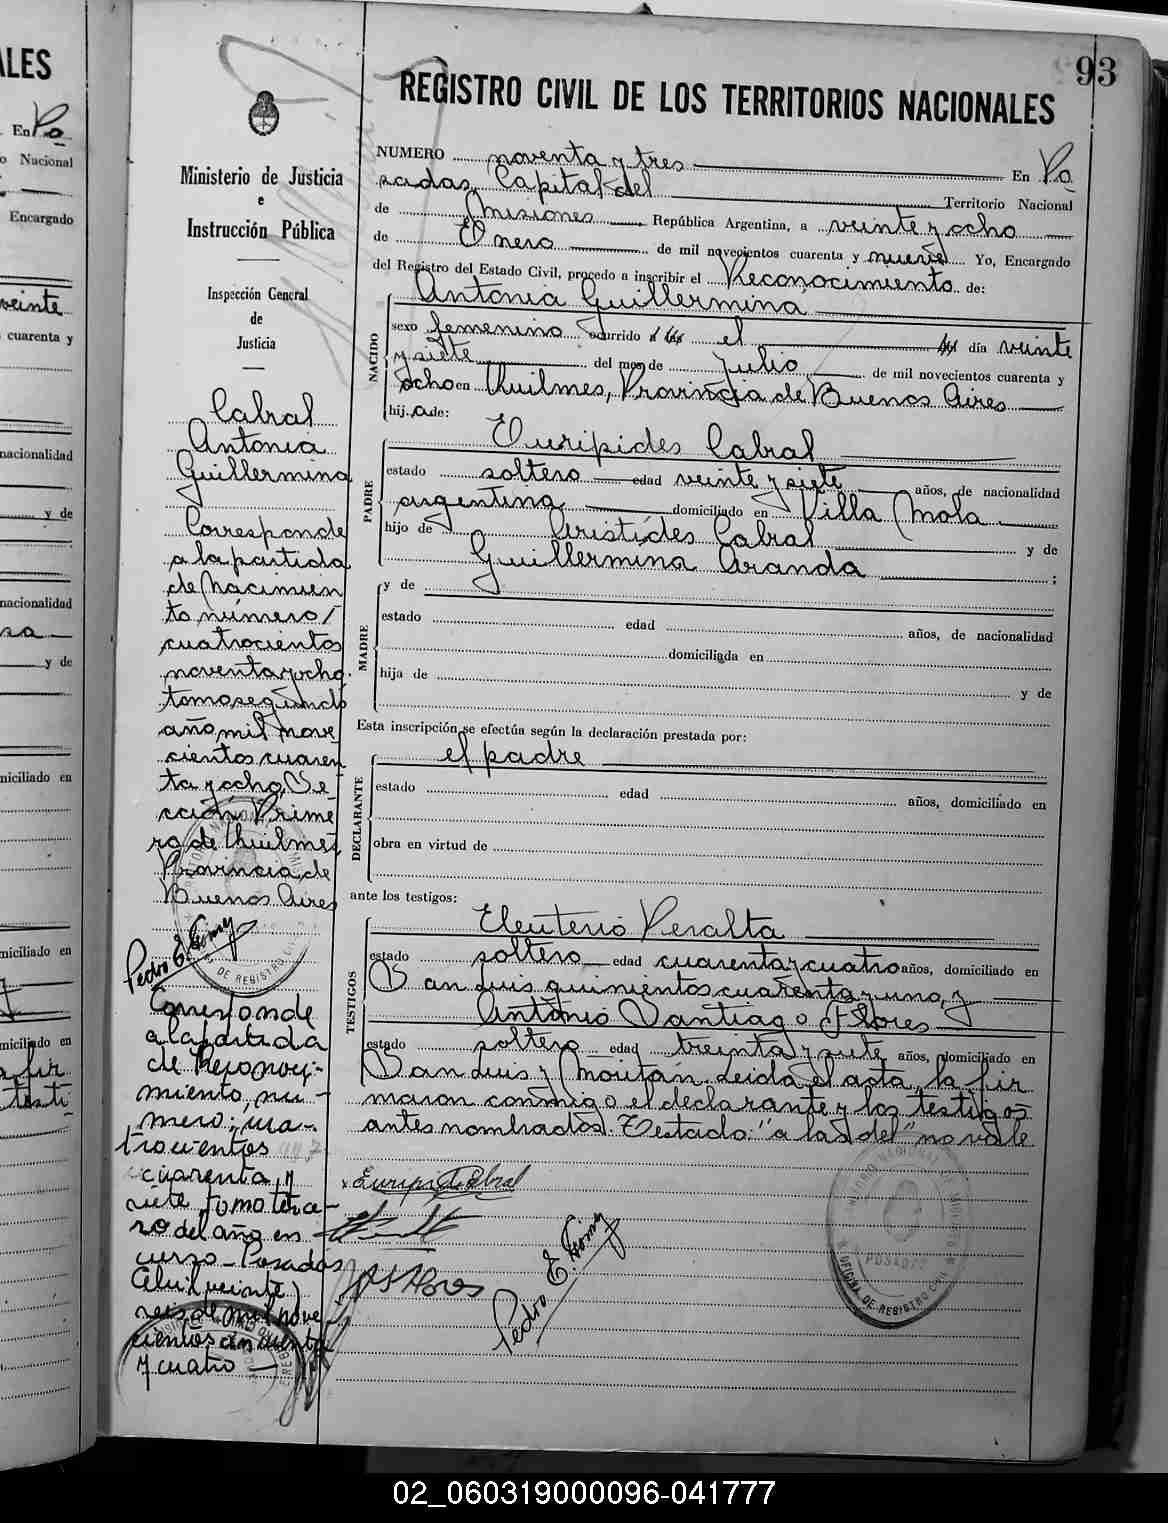 93
REGISTRO CIVIL DE LOS TERRITORIOS NACIONALES
Ministerio de Justicia
e
Instrucción Pública
Inspección General
de
Justicia
Cabral
Antonia
Guillermina
Corresponde
a la partida
de Nacimien
to número/
cuatrocientos
noventa y ocho
tomo segundo
año mil nove
cientos cuaren
ta y ocho, Se-
cción Prime
ra de Quilmes
Provincia de
Buenos Aires
Pedro E.
Corresponde
a la partida
de Reconoci-
miento, nu-
mero: cua-
trocientos 447
cuarenta y
siete, tomo terce-
ro del año en
curso - Posadas
Abril veinte y
seis de mil nove
cientos cincuenta
y cuatro
NUMERO noventa y tres En Po
sadas, Capital del Territorio Nacional
de Misiones República Argentina, a veinte y ocho
de Enero de mil novecientos cuarenta y nueve Yo, Encargado
del Registro del Estado Civil, procedo a inscribir el Reconocimiento de:
Antonia Guillermina
NACIDO
sexo femenino ocurrido a las el del día veinte
y siete del mes de julio de mil novecientos cuarenta y
ocho en Quilmes, Provincia de Buenos Aires
hija de:
PADRE
Euripides Cabral
estado soltero edad veinte y siete años, de nacionalidad
argentina domiciliado en Villa Mola
hijo de Aristides Cabral y de
Guillermina Aranda ;
MADRE
y de
estado edad años, de nacionalidad
domiciliada en
hija de y de
Esta inscripción se efectúa según la declaración prestada por:
DECLARANTE
el padre
estado edad años, domiciliado en
obra en virtud de
ante los testigos:
TESTIGOS
Eleuterio Peralta
estado soltero edad cuarenta y cuatro años, domiciliado en
San Luis quinientos cuarenta y uno, y
Antonio Santiago Flores
estado soltero edad treinta y siete años, domiciliado en
San Luis y Moután. Leida el acta, la fir
maron conmigo el declarante y los testigos
antes nombrados. Testado: "a las del" no vale
Euripides Cabral
Flores
Pedro E.
POSADAS
OFICINA DE REGISTRO CIVIL
ALES
En Po
o Nacional
Encargado
veinte
cuarenta y
nacionalidad
y de
nacionalidad
y de
miciliado en
miciliado en
miciliado en
a fir
testi
02_060319000096-041777